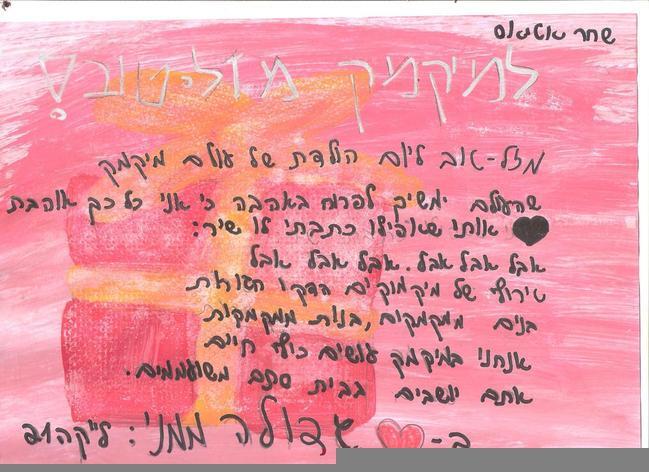 שחר אטיאס
למיקמיק מזל-טוב!
מזל-טוב ליום הולדת של עולם מיקמק
שהעולם ימשיך לפרוח באהבה כי אני כל כך אוהבת
אותו שאפילו כתבתי לו שיר:
אבל אבל אבל. אבל אבל אבל
טירוף של מיקמוקים הדקו חגורות
בנים ממקמקים, בנות ממקמקות
אנחנו במיקמק עושים כיף חיים
אתם יושבים בבית סתם משועממים.
ב- גדולה ממני: